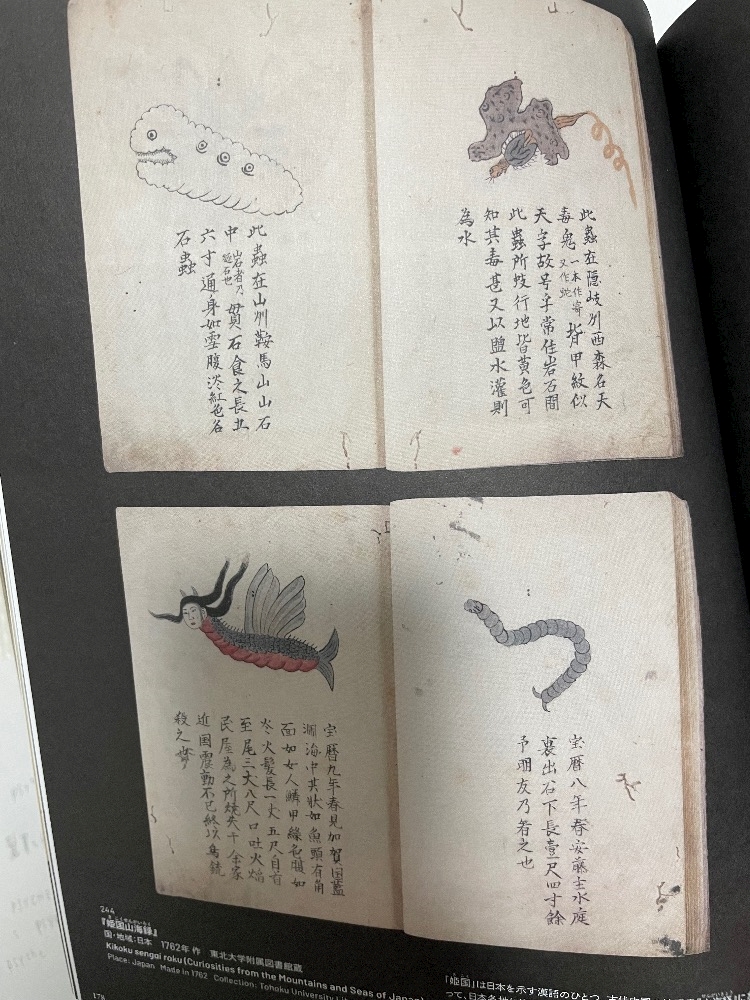 此蟲在隠岐州西森名天
毒鬼一本作寄又作蛇背甲紋似
天字故号乎常住岩石間
此蟲所蛟行地皆黄色可
知其毒甚又以盬水灌則
為水
此蟲在山州鞍馬山山石
中岩者乃
六寸通身如雪腹淡紅色名
石蟲
宝暦八年春安藤主水庭
裏出谷下長壹尺四寸餘
予朋友乃者之也
宝暦九年春見加賀国
海中其状如魚頭有角
面如女人鱗甲緑色腹如
火髪長一丈五尺自首
至尾三丈八尺口吐火焔
民屋為之所焼失千余家
近国震動不已終以鳥銃
殺之
244
『姫国山海録』
国・地域:日本 1762年 作 東北大学附属図書館蔵
Kikoku sengai roku (Curiosities from the Mountains and Seas of Japan)
Place: Japan Made in 1762 Collection: Tohoku University
178
「姫国」は日本を示す漢語のひとつ。
って、日本各地